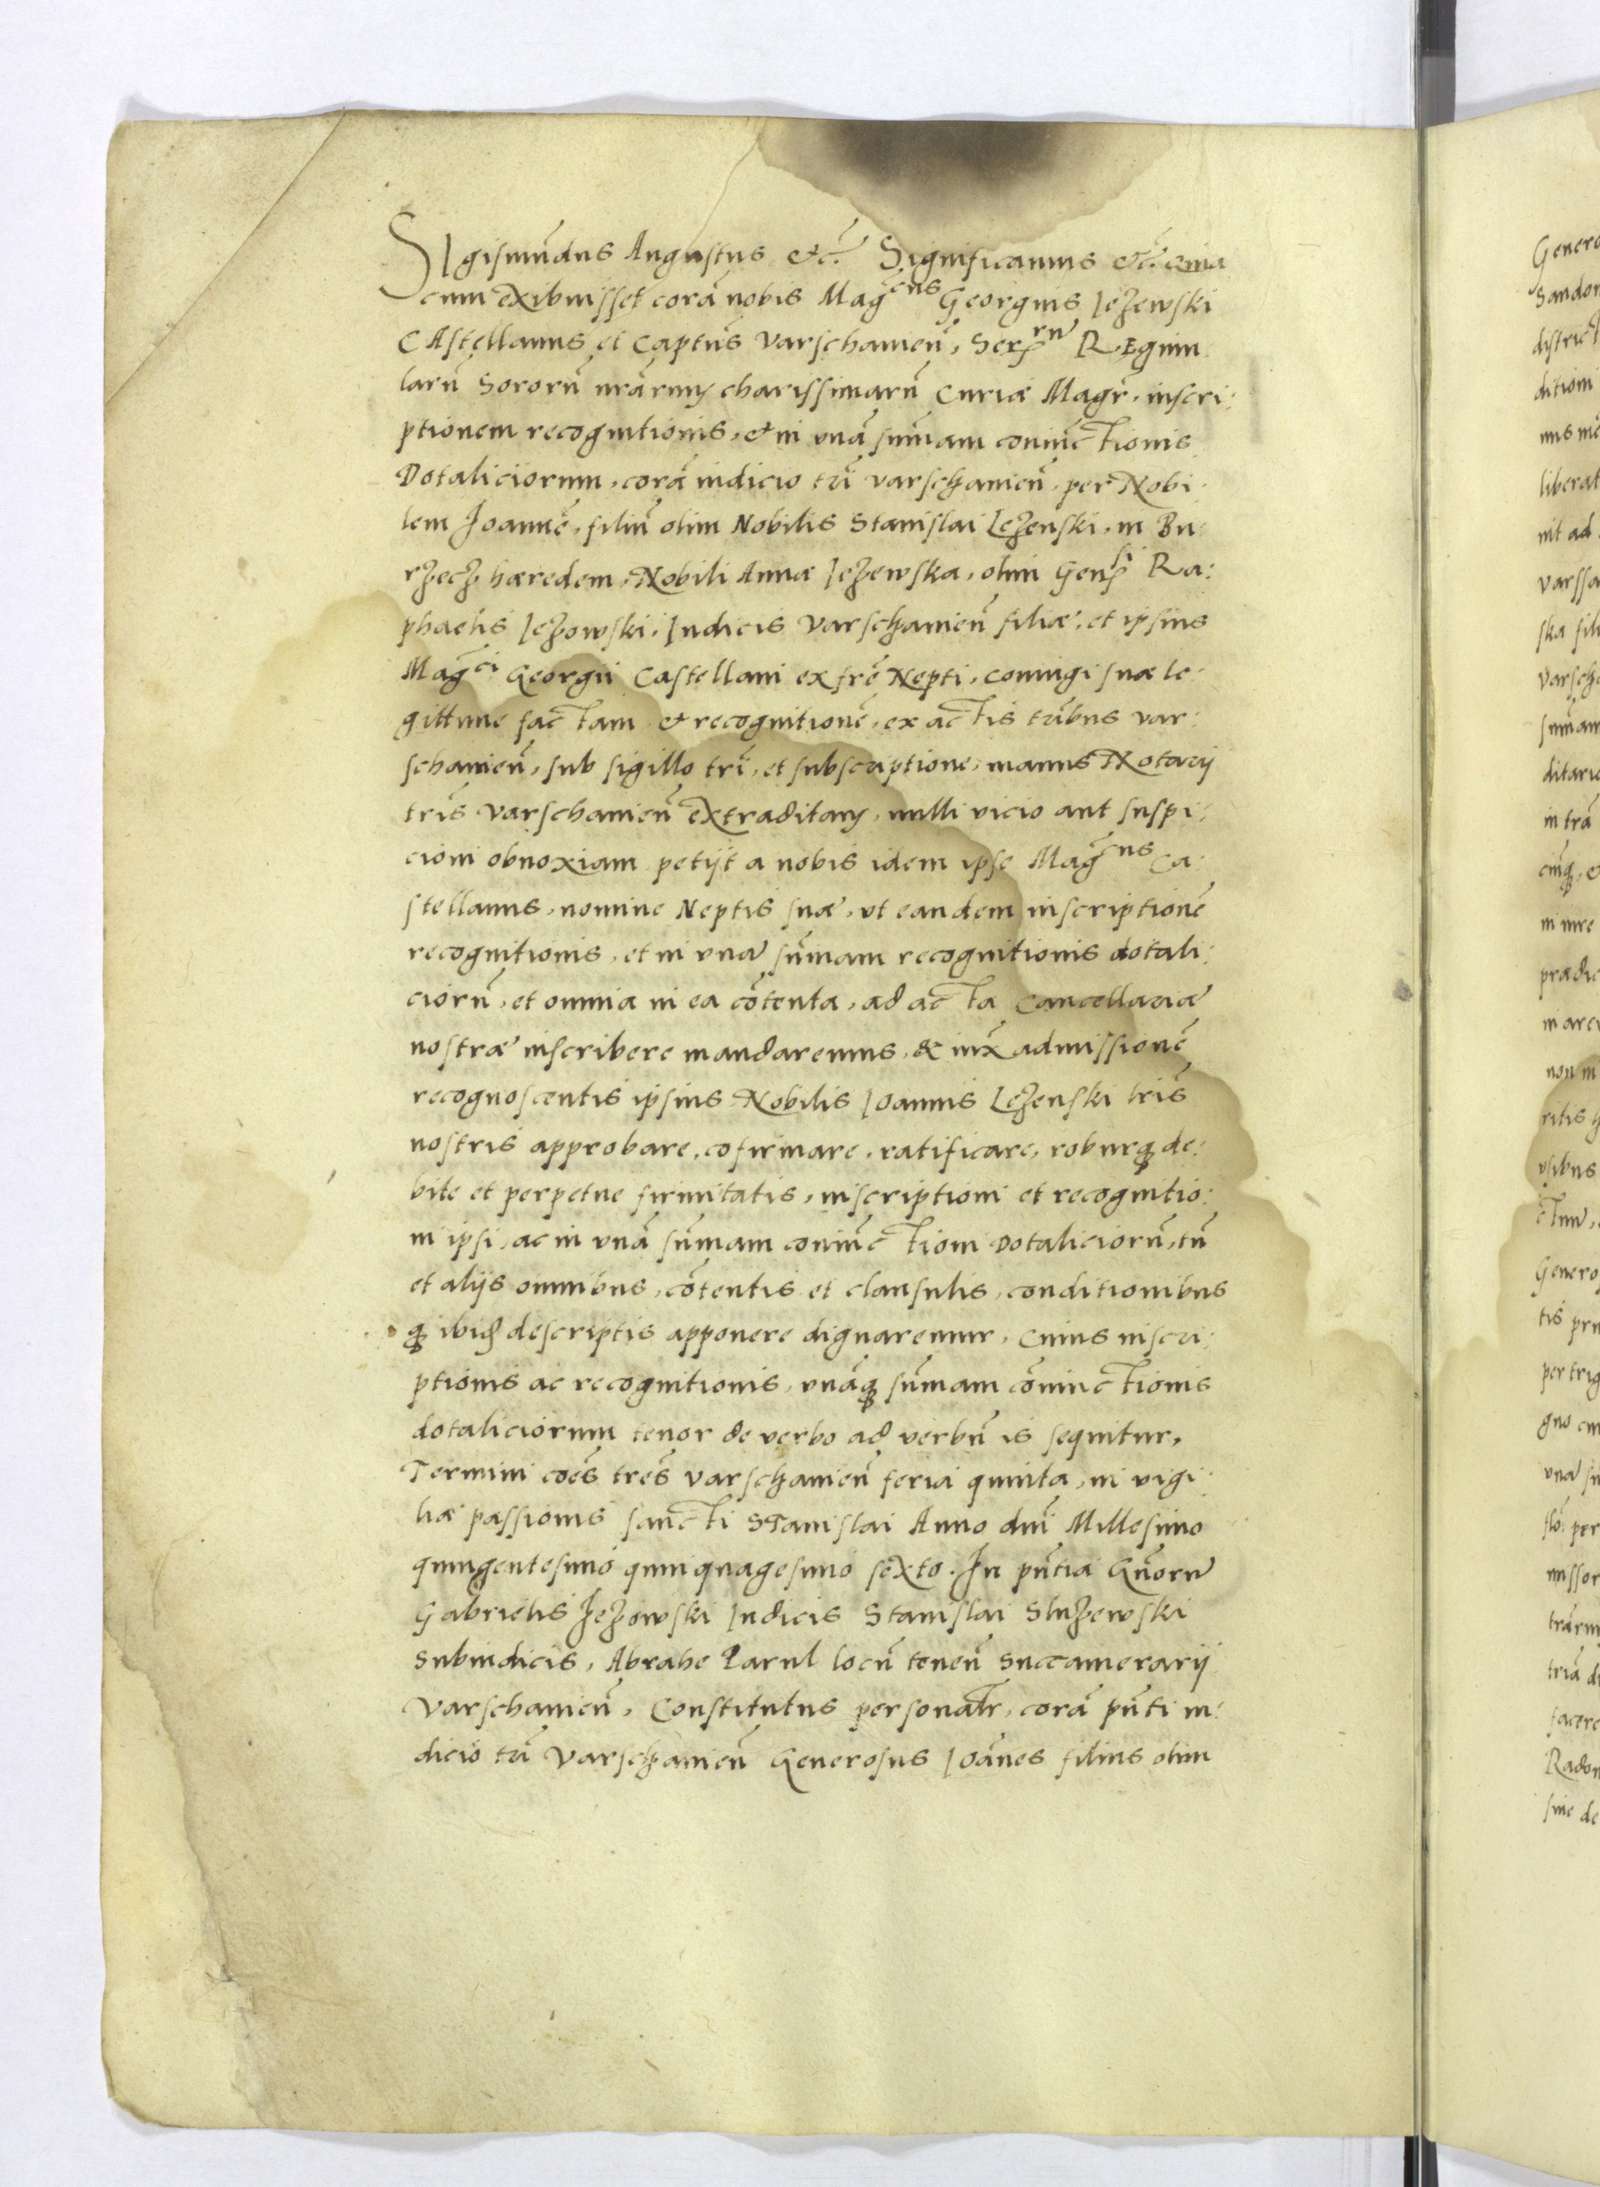 Sigismūdus Augustus etc̄. Significamus etc̄. quia
cum exibuisset corā nobis Mag^cus Georgius Jeżewski
CAstellanus et Captūs Varschamieñ, Ser^rū REginu
larū Sororū nrārum charissimarū Curiæ Magr̄, inscri:
ptionem recognitionis, et in unā sum̄am coniūctionis
Dotaliciorum, corā iudicio trī varschamieñ, per Nobi:
lem Joannē, filiū olim Nobilis Stanislai Leżenski, in Bu:
rzecz hæredem, Nobili Annæ Jeżewska, olim Gen^si Ra:
phaelis Jeżowski, Judicis Varschamieñ filiæ, et ipsius
Mag^ci Georgii Castellani ex frē Nepti, coniugi suæ le:
gittime factam et recognitionē, ex actis tr̄ibus var:
schamieñ, sub sigillo trī, et subscriptione, manus Notarij
trīs varschamieñ extraditam, nulli vicio aut suspi:
cioni obnoxiam petijt a nobis idem ipse Mag^cus Ca:
stellanus, nomine Neptis suæ, ut eandem inscriptionē
recognitionis, et in unā sūmam recognitionis dotali:
ciorū, et omnia in ea cōtenta, ad acta Cancellariæ
nostræ inscribere mandaremus, & iux̄ admissionē
recognoscentis ipsius Nobilis Joannis Leżenski lrīs
nostris approbare, cofirmare, ratificare, roburq; de:
bite et perpetue firmitatis, inscriptioni et recognitio:
ni ipsi, ac in unā sūmam coniūctioni dotaliciorū, tū
et alijs omnibus, cōtentis et clausulis, conditionibus
q; ibid descriptis apponere dignaremur, Cuius inscri:
ptionis ac recognitionis, unāq; sūmam cōniuctionis
dotaliciorum tenor de verbo ad verbū is sequitur,
Termini cōes trēs varschamieñ feria quinta, in vigi:
liæ passionis sancti STanislai Anno dnī Millesimo
quingentesimo quinquagesimo sexto. In pn̄tia Gn̄orū
Gabrielis Jeżowski Judicis Stanislai Służewski
Subiudicis, Abrahe Parul locū teneñ Succamerarij
Varschamieñ, Constitutus personalr̄, corā pn̄ti iu:
dicio trī Varschamieñ Generosus Joānes filius olim